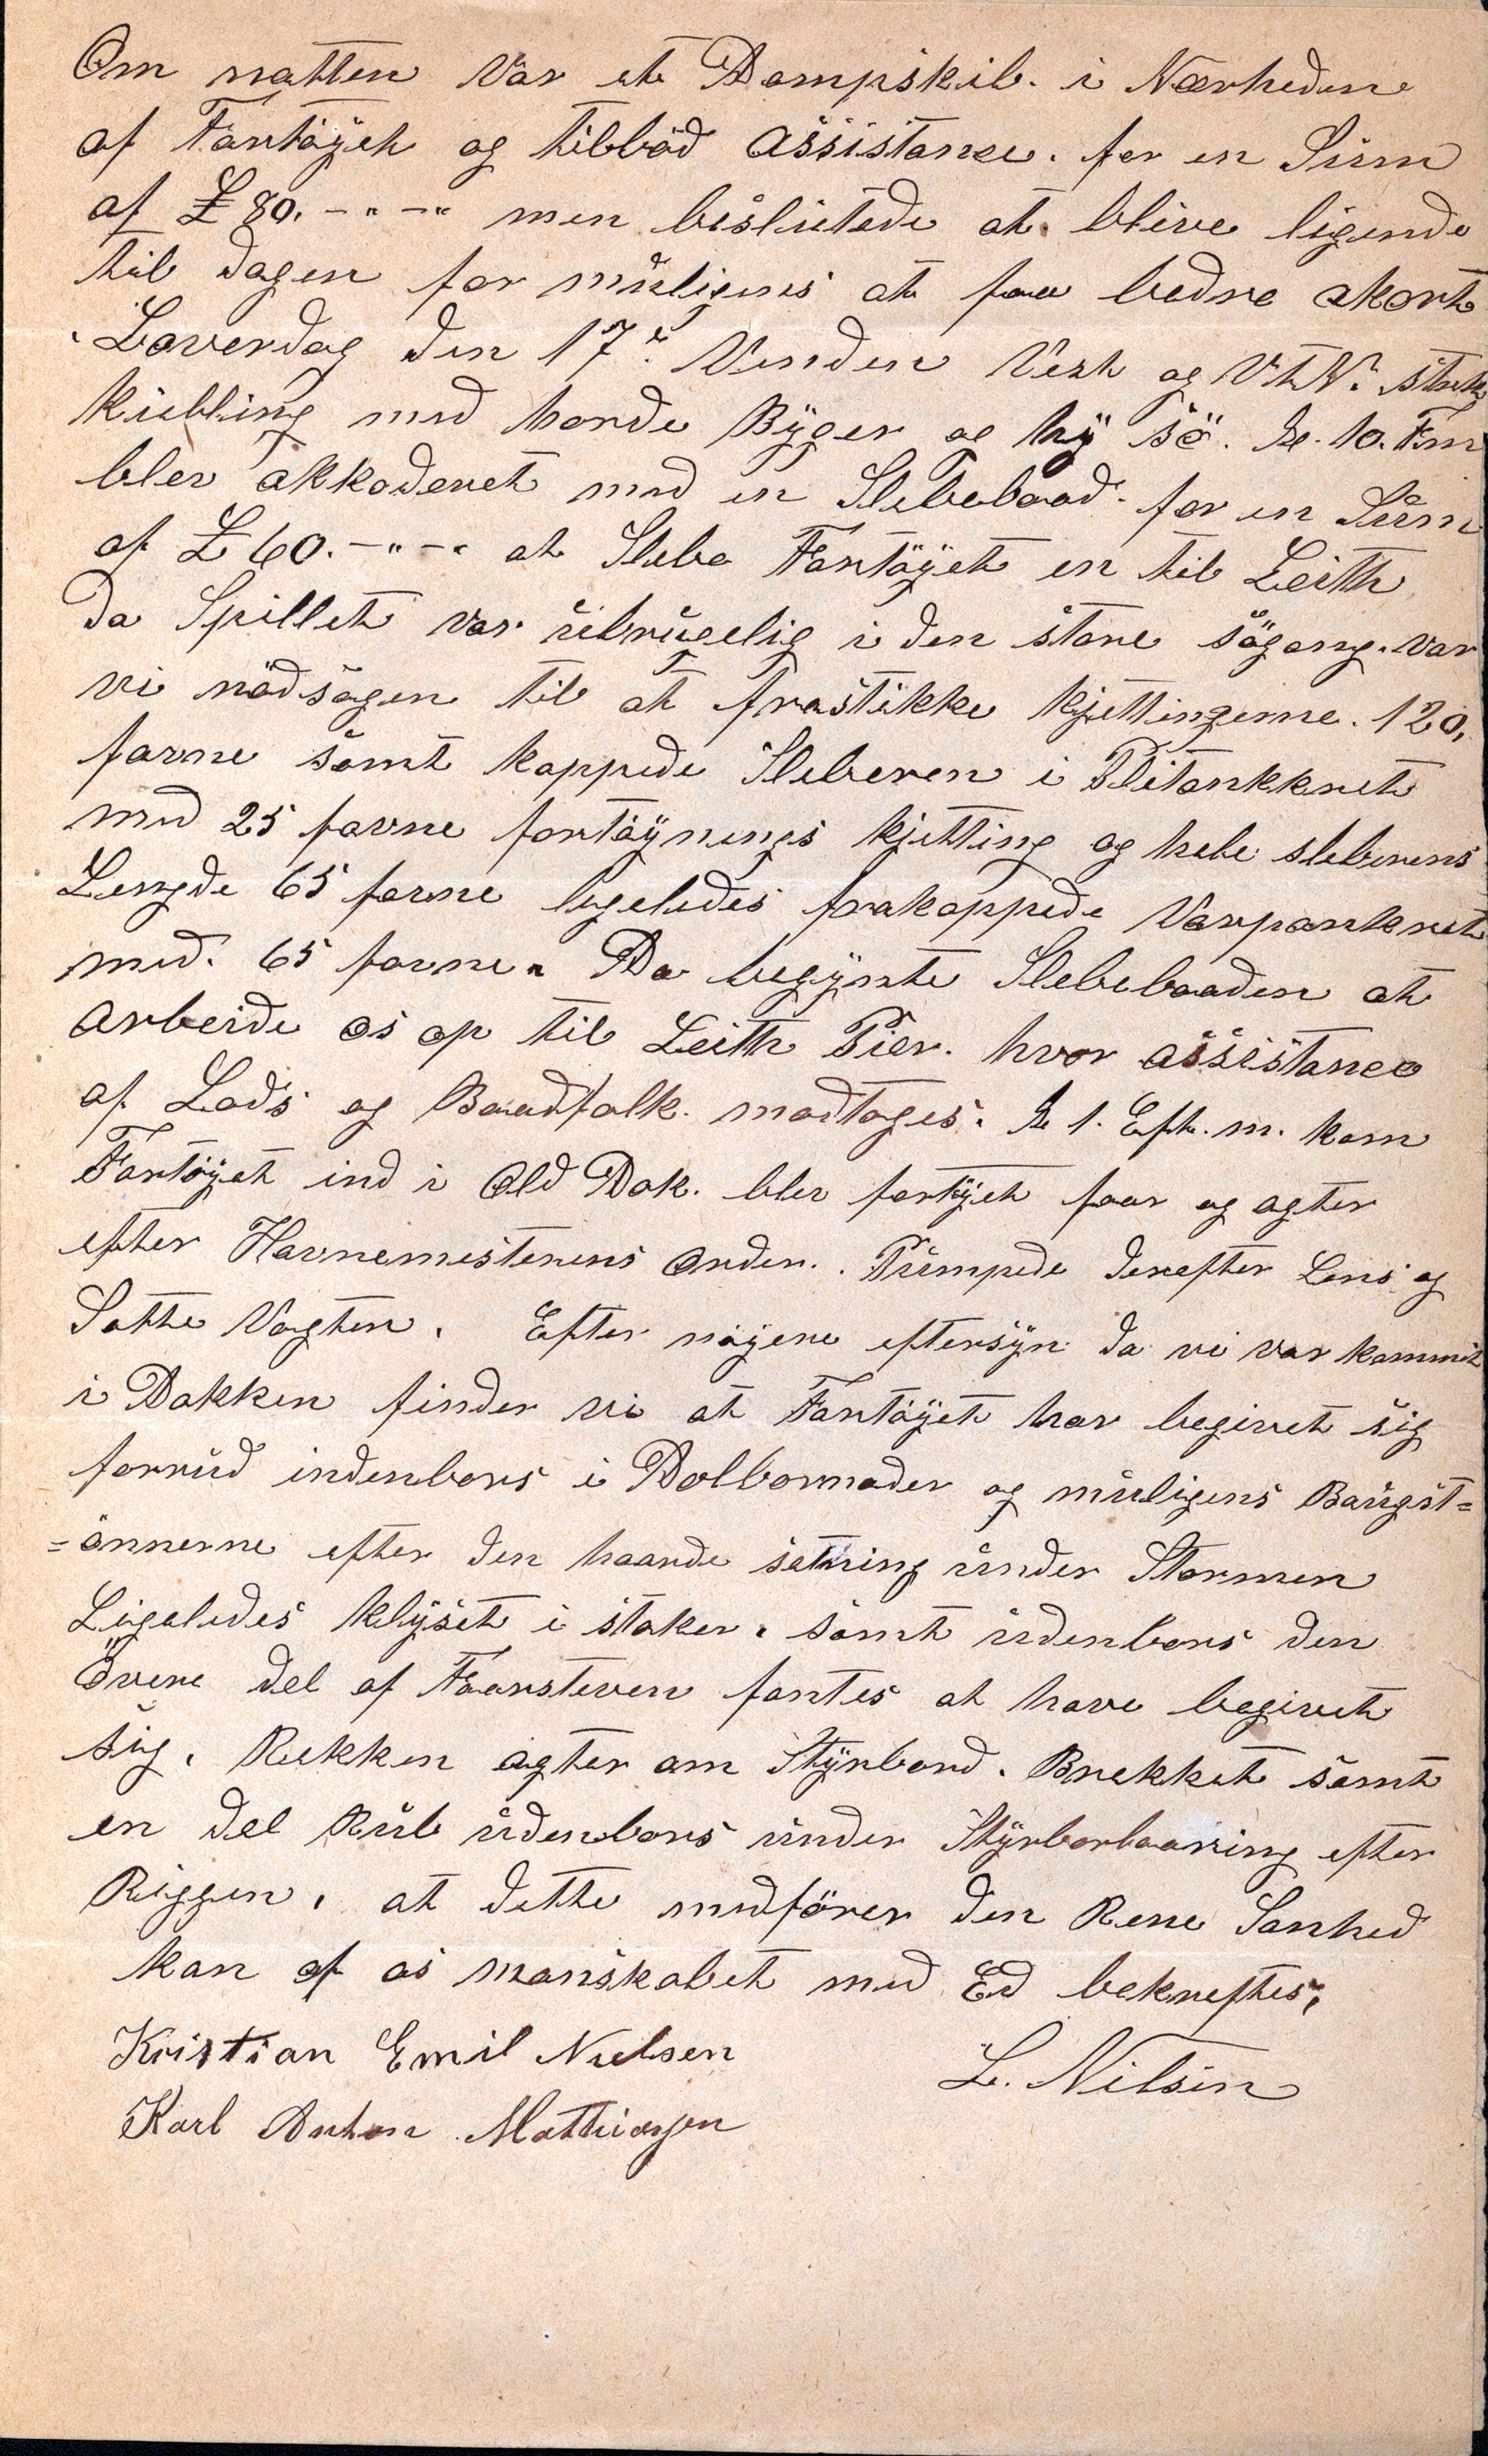 Om natten var et Dampskib. i Nærheden
af Fartöyet og tilböd Assistance. for en Sum
af £ 80. -"-" men besluttede at blive ligende
til dagen for muligens at faa bedre akort
Loverdag den 17de Vinden Vest og VtN. sterk
Kuhling med harde Byger og hy Sö. Kl. 10. Fm
blev akkoderet med en Slebebaad. for en Sum
af £ 60. -"-" at Slebe Fartöyet en til Leith
Da Spillet var übrugelig i den store sögang. var
vi nödsagen til at frastikke kjettingerne. 120,
favne samt kappede Sleberen i Plitankkret
med 25 favne fortöynings kjetting og hele sleberens
Lengde 65 favne ligeledes frakappede Varpankret
med. 65 favne. Da begynte Slebebaaden at
Arbeide os op til Leith Pier. hvor assistance
af Lods og Baadfolk. modtoges. Kl 1. Eft. m. kom
Fartöyet ind i Old Dok. blev fortöyet foor og agter
efter Havnemesterens Order. Pumpede derefter Lens og
Satte Vagten. Efter nöyere eftersyn da vi var kommet
i Dokken finder vi at Fartöyet har begivet sig
forrud indenbors i Dolbornader og muligens Baugst=
=önnerne efter den haarde setning under Stormen
Ligeledes klyset i stoker. samt udenbors den
Övere del af Foorsteven fantes at have begivet
sig. Rekken agter om Styrbord. Brekket samt
en del Rub udenbors under Styrborboaring efter
Riggen. at dette medförer den Rene Sanhed
kan af os manskabet med Ed bekreftes.
Kristian Emil Nielsen L. Nilsen
Karl Anton Mathiasen